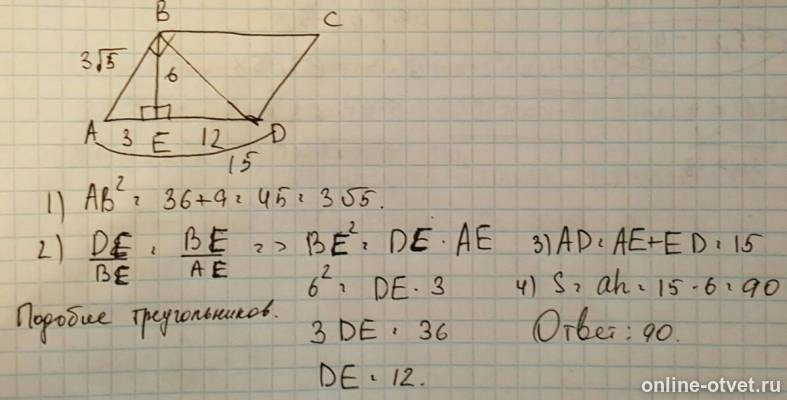 B
C
3√5
6
A
3
E
12
D
15
1) AB² = 36+9 = 45 = 3√5.
2) DE/BE = BE/AE => BE² = DE · AE
3) AD = AE+ED = 15
6² = DE · 3
4) S = ah = 15 · 6 = 90
Подобие треугольников.
3 DE = 36
Ответ: 90.
DE = 12.
online-otvet.ru